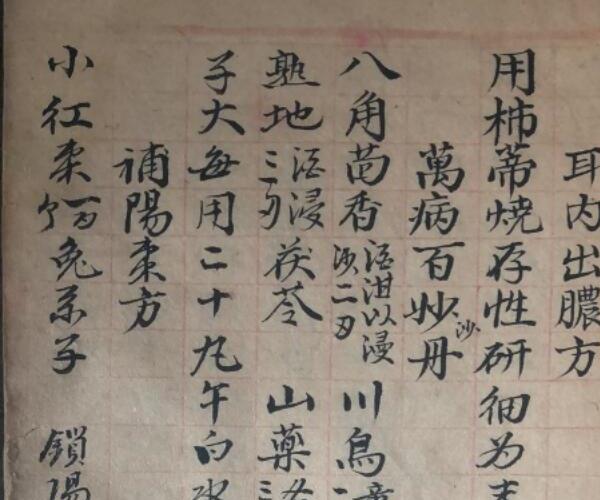 耳内出膿方
用柿蒂燒存性研細为末
萬病百妙沙丹
八角茴香酒泔以浸沙二刃川烏
熟地酒浸三刃茯苓山藥
子大每用二十九午白水
補陽棗方
小紅棗兔糸子鎖陽